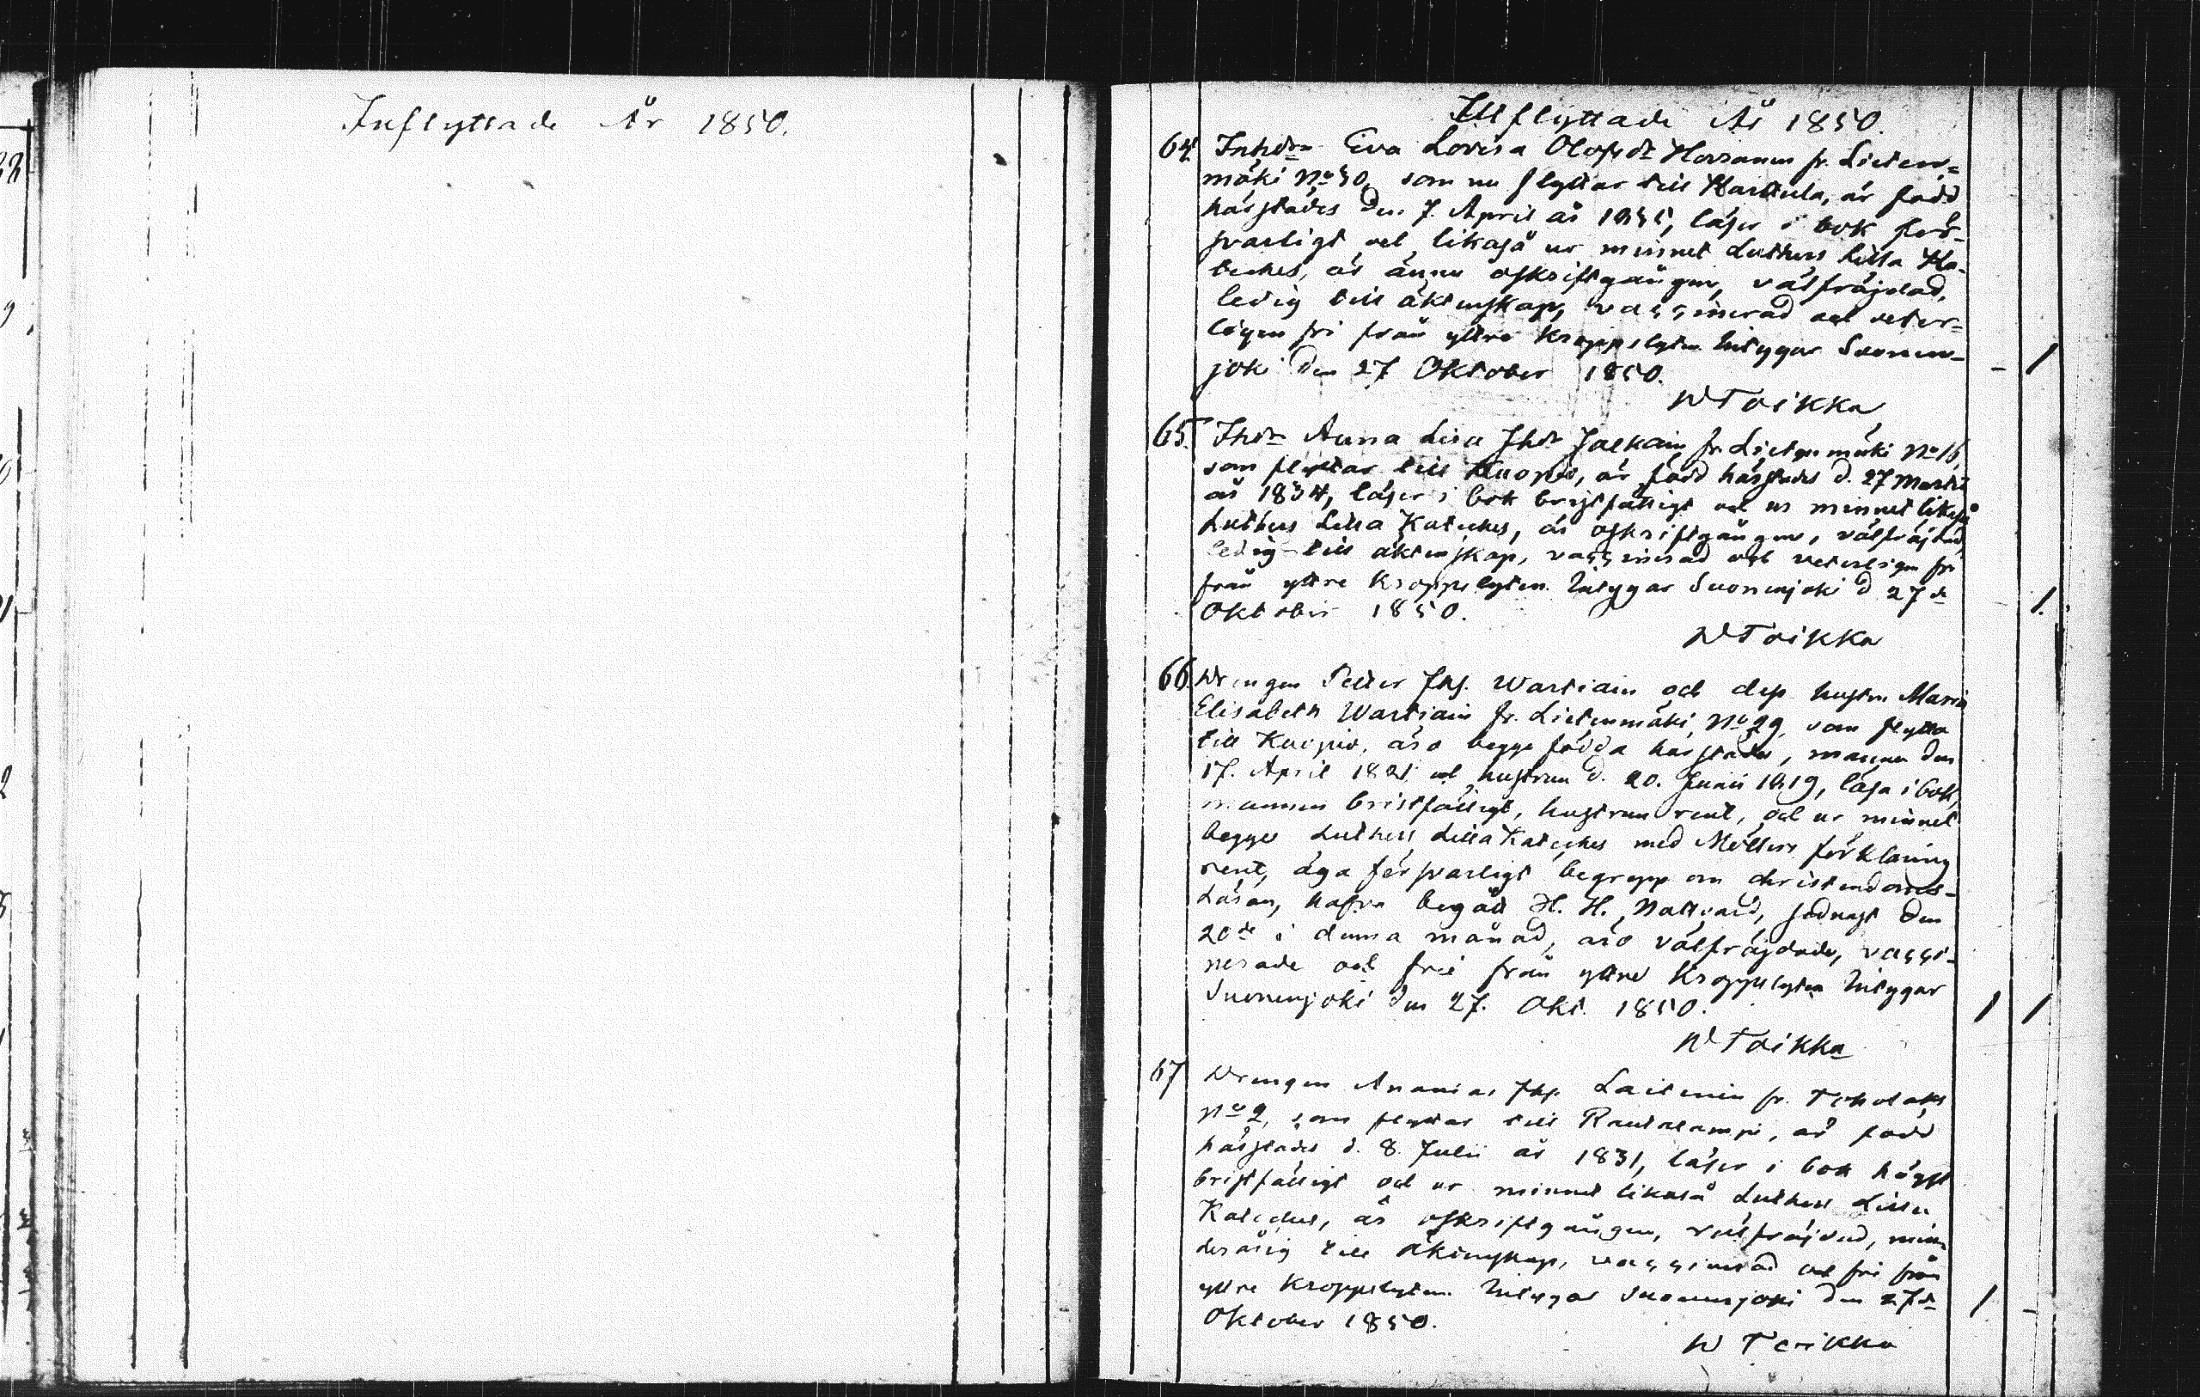 Inflyttade År 1850.
Utflyttade År 1850.
64. Inhdrn Eva Lovisa Olofsdr Horsanen fr. Lieten=
mäki No 30, som nu flyttar till Karttula, är född
härstädes den 7. April år 1835, läser i bok för-
svarligt och likaså ur minnet Luthers Lilla Ka-
teches, är ännu oskriftgången, välfräjdad,
ledig till äktenskap, vaccinerad och veter=
ligen fri från yttre kroppslyten. Intygar Suonen-
joki den 27 Oktober 1850.
- 1
W Toikka
65. Ihdr Anna Lisa Jhdr Jalkain fr. Lietenmäki No 16,
som flyttar till Kuopio, är född härstädes d. 27 Martii
år 1834, läser i bok bristfälligt och ur minnet likaså
Luthers Lilla Kateches, är oskriftgången, välfräjdad,
ledig till äktenskap, vaccinerad och veterligen fri
från yttre kroppslyten. Intygar Suonenjoki d 27de
Oktober 1850.
1.
W Toikka
66. Drengen Petter Jhs. Wartiain och dess hustru Maria
Elisabeth Wartiain fr. Lietenmäki No 29, som flytta
till Kuopio, äro begge födda härstädes, mannen den
17. April 1821 och hustrun d. 20. Junii 1819, läsa i bok,
mannen bristfälligt, hustrun rent, och ur minnet
begge Luthers Lilla Kateches med Möllers förklaring
rent, äga försvarligt begrepp om christendoms-
Läran, hafva begått H. H. Nattvard, sednast den
20de i denna månad, äro välfräjdade, vacci-
nerade och frie från yttre kroppslyten Intygar
Suonenjoki den 27. Okt. 1850.
1 1
W Toikka
67 Drengen Ananias Jhs. Laitinen fr.
No 2, som flyttar till Rautalampi, är född
härstädes d. 8. Julii år 1831, läser i bok högst
bristfälligt och ur minnet likaså Luthers Lilla
Kateches, är oskriftgången, välfräjdad, min-
derårig till äktenskap, vaccinerad och fri från
yttre kroppslyten. Intygar Suonenjoki den 27de
Oktober 1850.
1 -
W Toikka